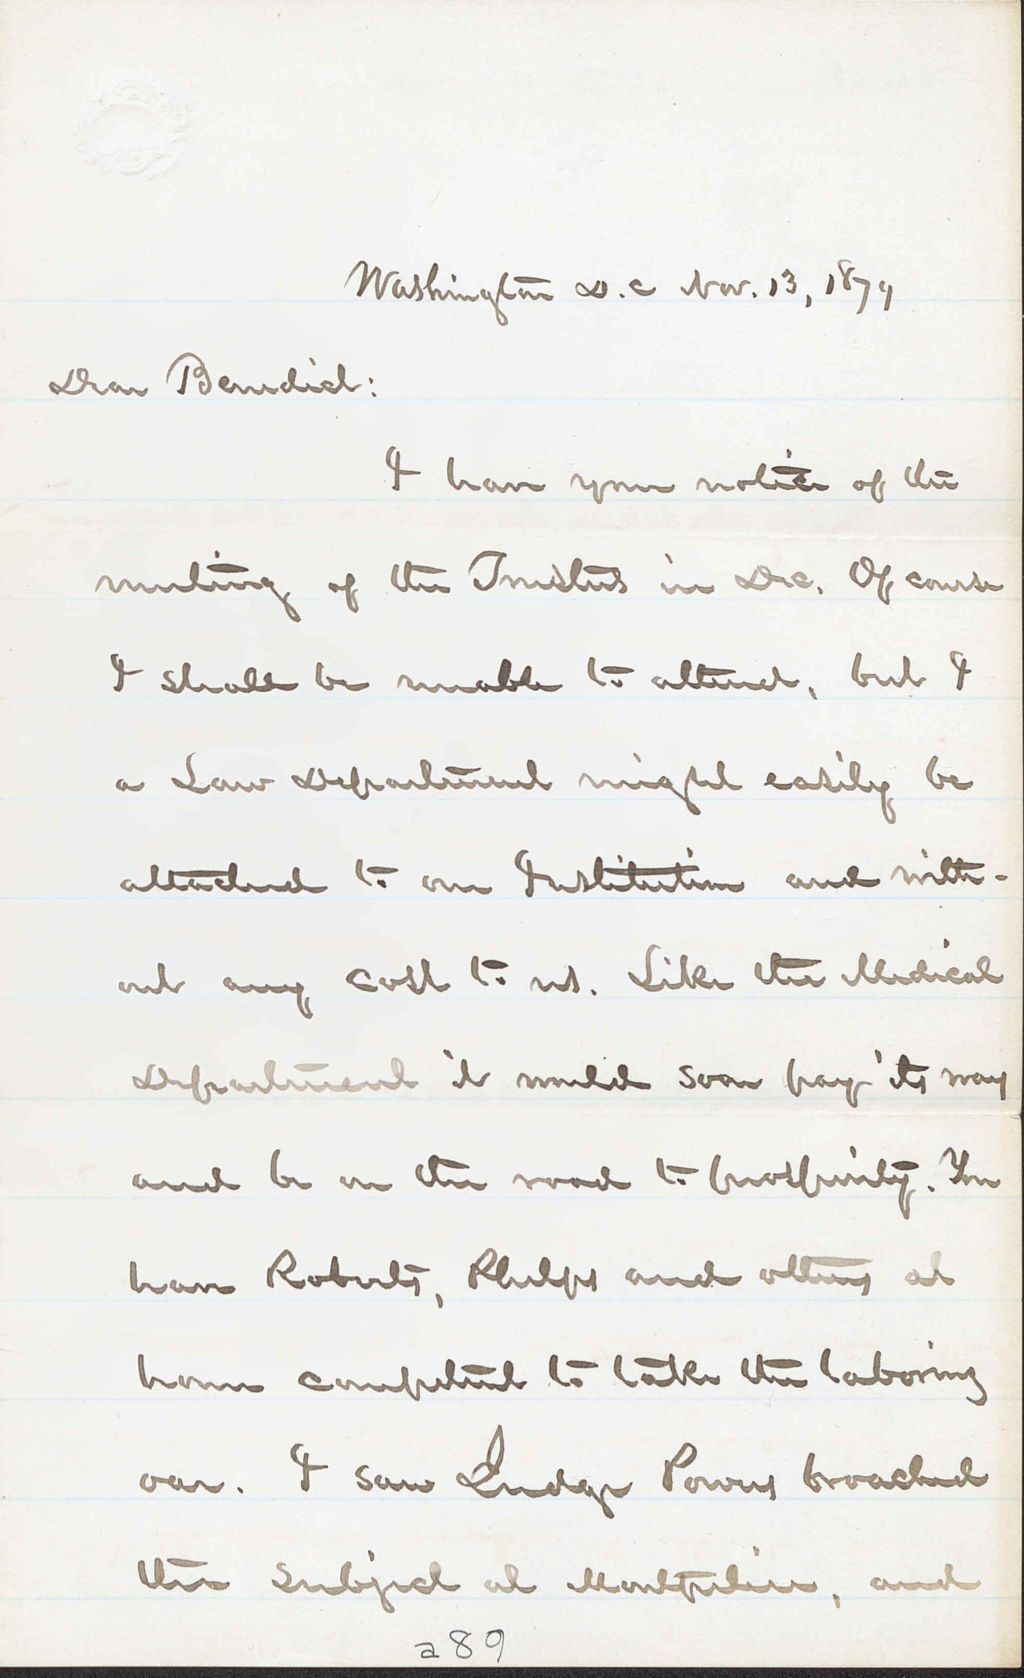 Washington D.C Nov. 13, 1879
Dear Benedict:
I have your notice of the
meeting of the Trustees in Dec. Of course
I shall be unable to attend, but I
a Law Department might easily be
attached to our Institution and with-
out any cost to us. Like the Medical
Department it would soon pay its way
and be on the road to prosperity. You
have Roberts, Phelps and others at
home competent to take the laboring
oar. I saw Judge Powers broached
the subject at Montpelier, and
a89